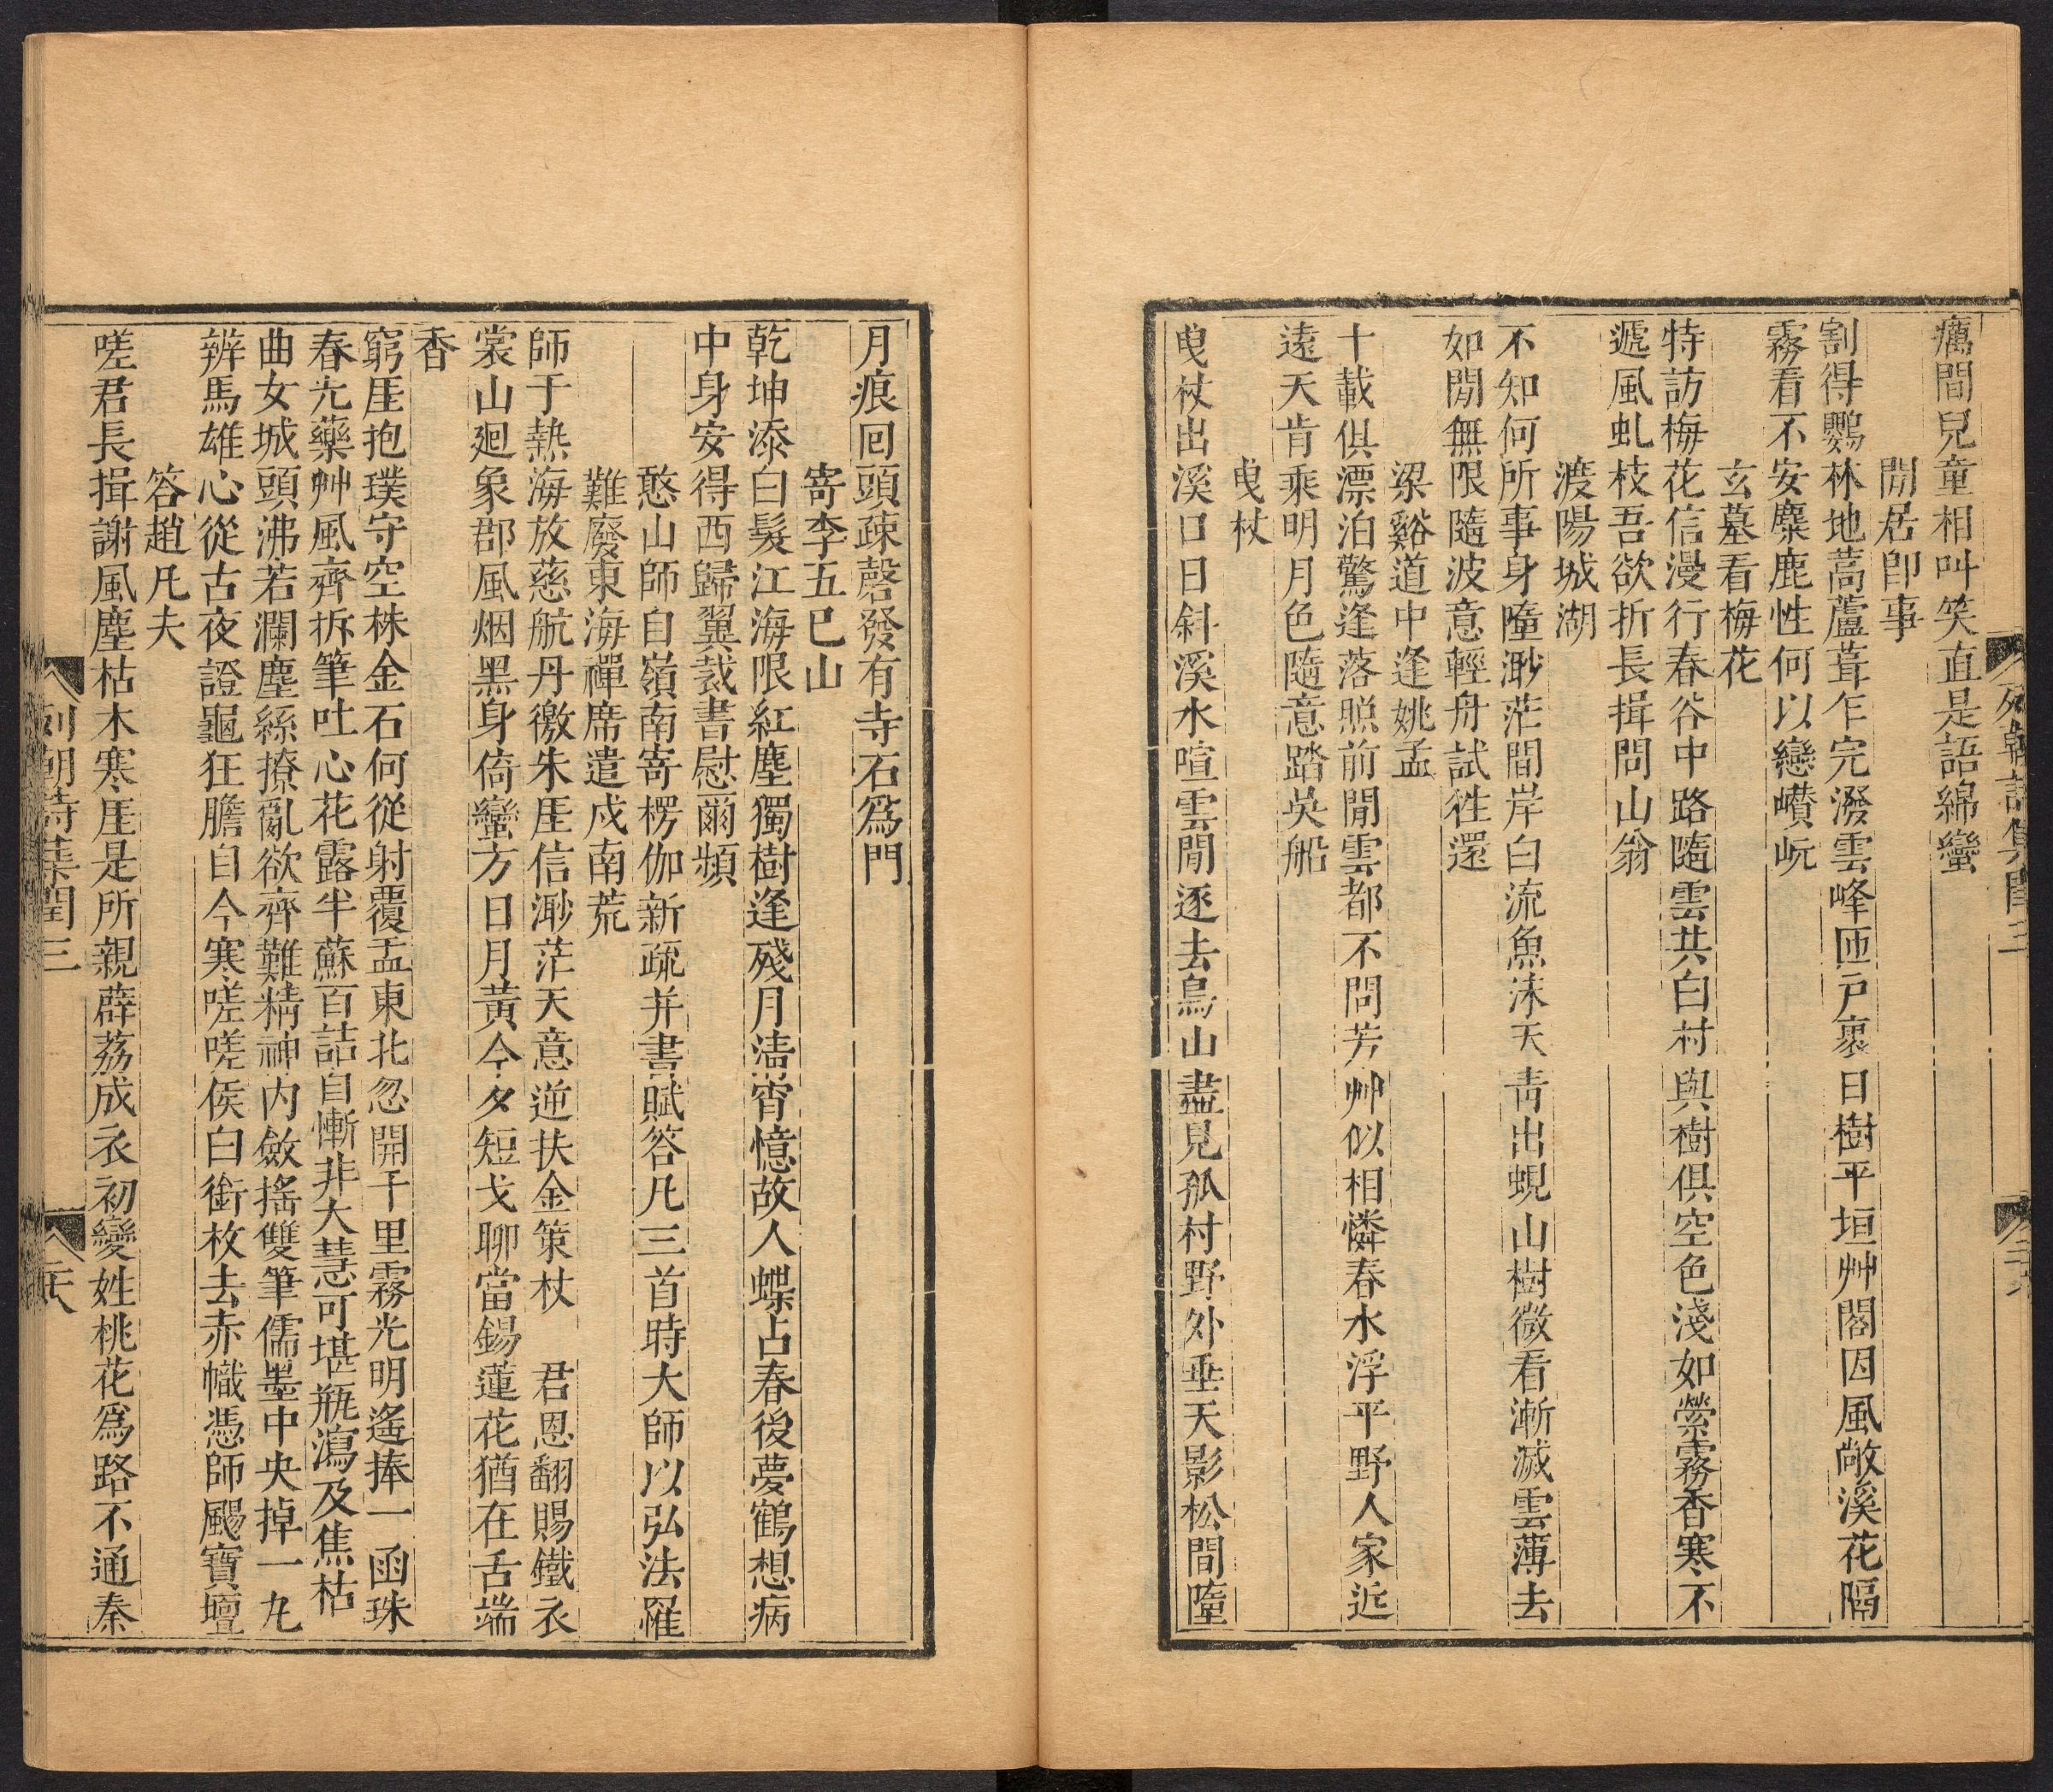 癘間兒童相叫笑直是語綿蠻
閒居卽事
割得鸚林地蒿蘆葺乍完潑雲峰匝戸裹日樹平垣艸閣因風敞溪花隔
霧看不安麋鹿性何以戀巑岏
玄墓看梅花
特訪梅花信漫行春谷中路隨雲共白村與樹俱空色淺如縈霧香寒不
遞風虬枝吾欲折長揖問山翁
渡陽城湖
不知何所事身墮渺茫間岸白流魚沫天靑出蜆山樹微看漸滅雲薄去
如閒無限隨波意輕舟試徃還
梁谿道中逢姚孟
十載俱漂泊驚逢落照前閒雲都不問芳艸似相憐春水浮平野人家近
遠天肯乘明月色隨意踏吳船
曳杖
曳杖出溪口日斜溪水喧雲閒逐去鳥山盡見孤村野外垂天影松間墮
月痕回頭疎磬發有寺石爲門
寄李五巳山
乾坤添白髮江海限紅塵獨樹逢殘月淸宵憶故人蝶占春後夢鶴想病
中身安得西歸翼裁書慰爾頻
憨山師自嶺南寄楞伽新疏并書賦答凡三首時大師以弘法罹
難廢東海禪席遣戍南荒
師于熱海放慈航丹徼朱厓信渺茫天意逆扶金策杖 君恩翻賜鐵衣
裳山廻象郡風烟黑身倚蠻方日月黃今夕短戈聊當錫蓮花猶在舌端
香
窮厓抱璞守空株金石何從射覆盂東北忽開千里霧光明遙捧一函珠
春光藥艸風齊拆筆吐心花露半蘇百詰自慚非大慧可堪瓶瀉及焦枯
曲女城頭沸若瀾塵絲撩亂欲齊難精神內斂搖雙筆儒墨中央掉一丸
辨馬雄心從古夜證龜狂膽自今寒嗟嗟侯白銜枚去赤幟憑師颺寶壇
答趙凡夫
嗟君長揖謝風塵枯木寒厓是所親薜荔成衣初變姓桃花爲路不通秦
列朝詩集閏三